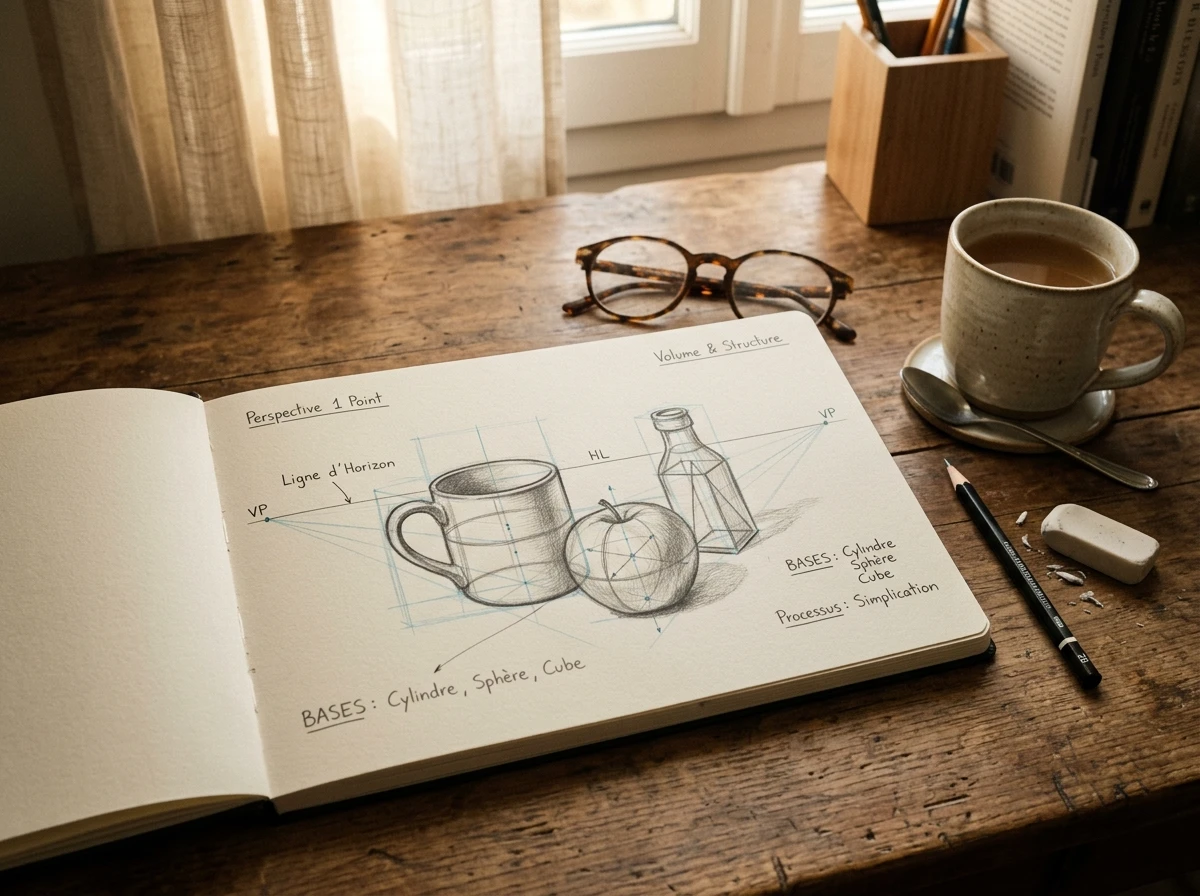 Perspective 1 Point
Volume & Structure
Ligne d'Horizon
VP
HL
VP
BASES: Cylindre
Sphère
Cube
Processus: Simplication
BASES: Cylindre, Sphère, Cube